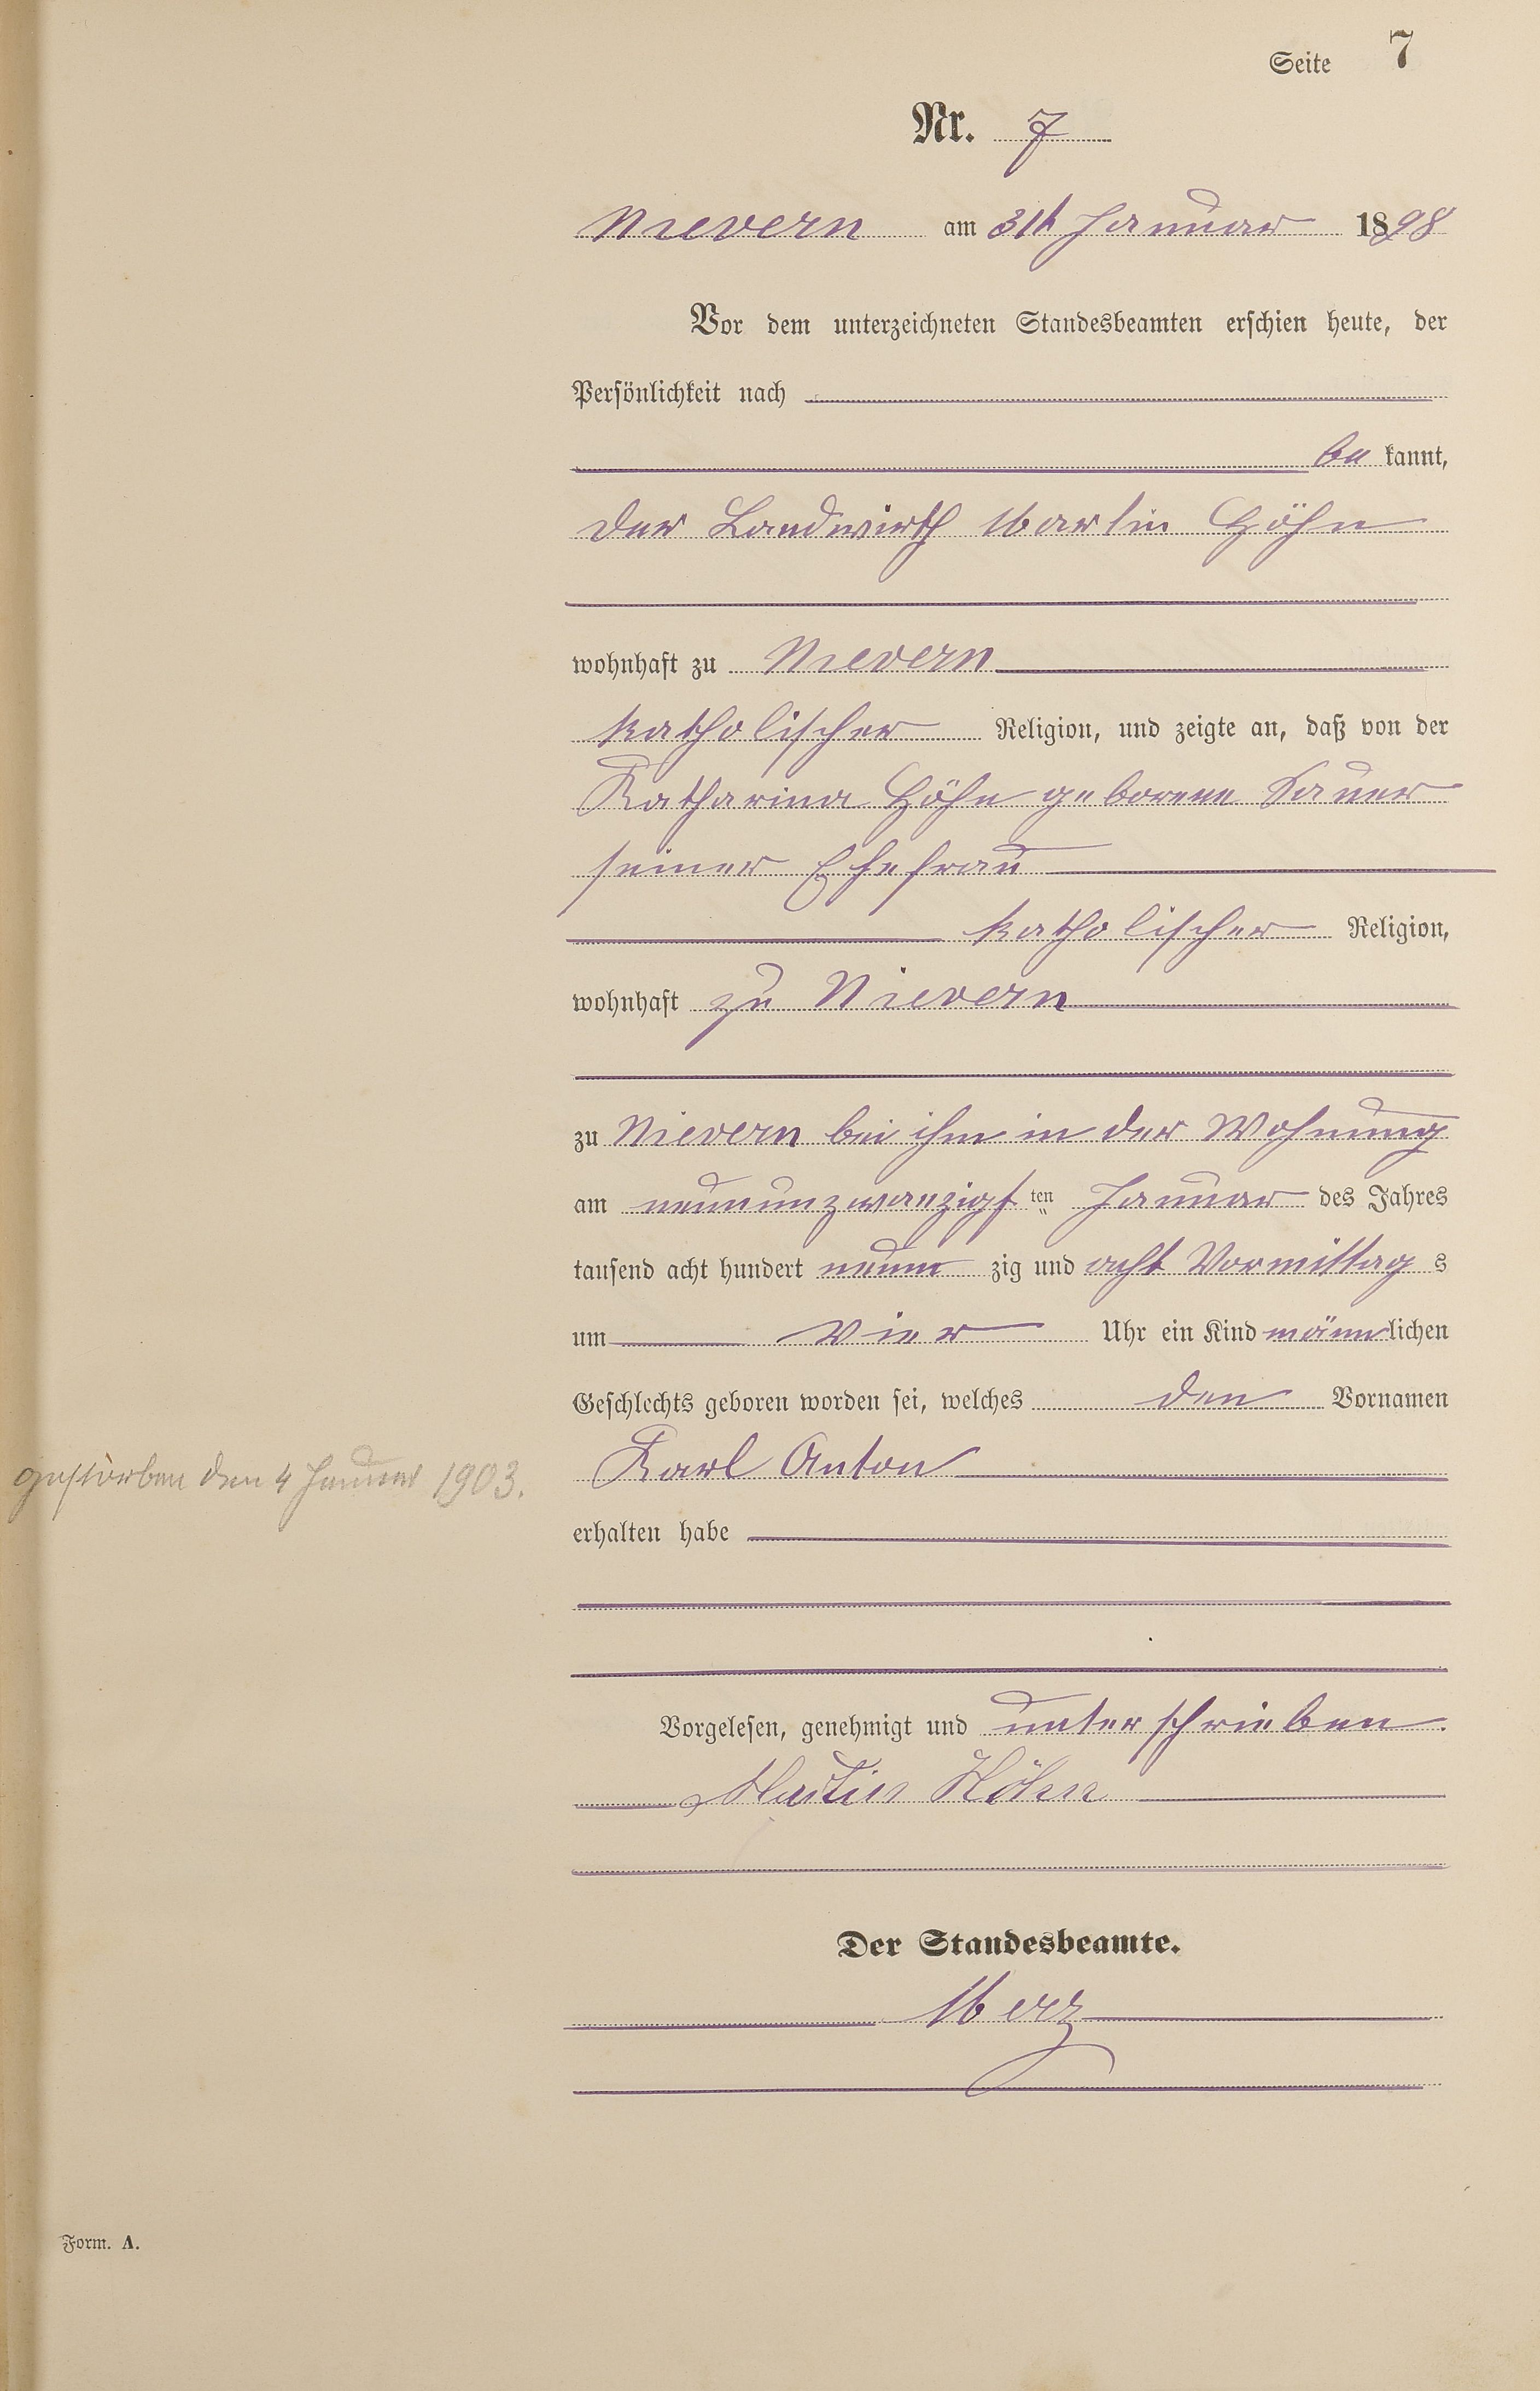 Seite 7
Nr. 7
Nievern am 31t Januar 1898
Vor dem unterzeichneten Standesbeamten erschien heute, der
Persönlichkeit nach
be kannt,
der Landwirth Martin Höhn
wohnhaft zu Nievern
katholischer Religion, und zeigte an, daß von der
Katharina Höhn geborene Sauer
seiner Ehefrau
katholischer Religion,
wohnhaft zu Nievern
zu Nievern bei ihm in der Wohnung
am neunundzwanzigsten Januar des Jahres
tausend acht hundert neun zig und acht Vormittag s
um vier Uhr ein Kind männlichen
Geschlechts geboren worden sei, welches den Vornamen
Karl Anton
gestorben den 4 Januar 1903.
erhalten habe
Vorgelesen, genehmigt und unterschrieben.
Martin Höhn
Der Standesbeamte.
Merz
Form. A.